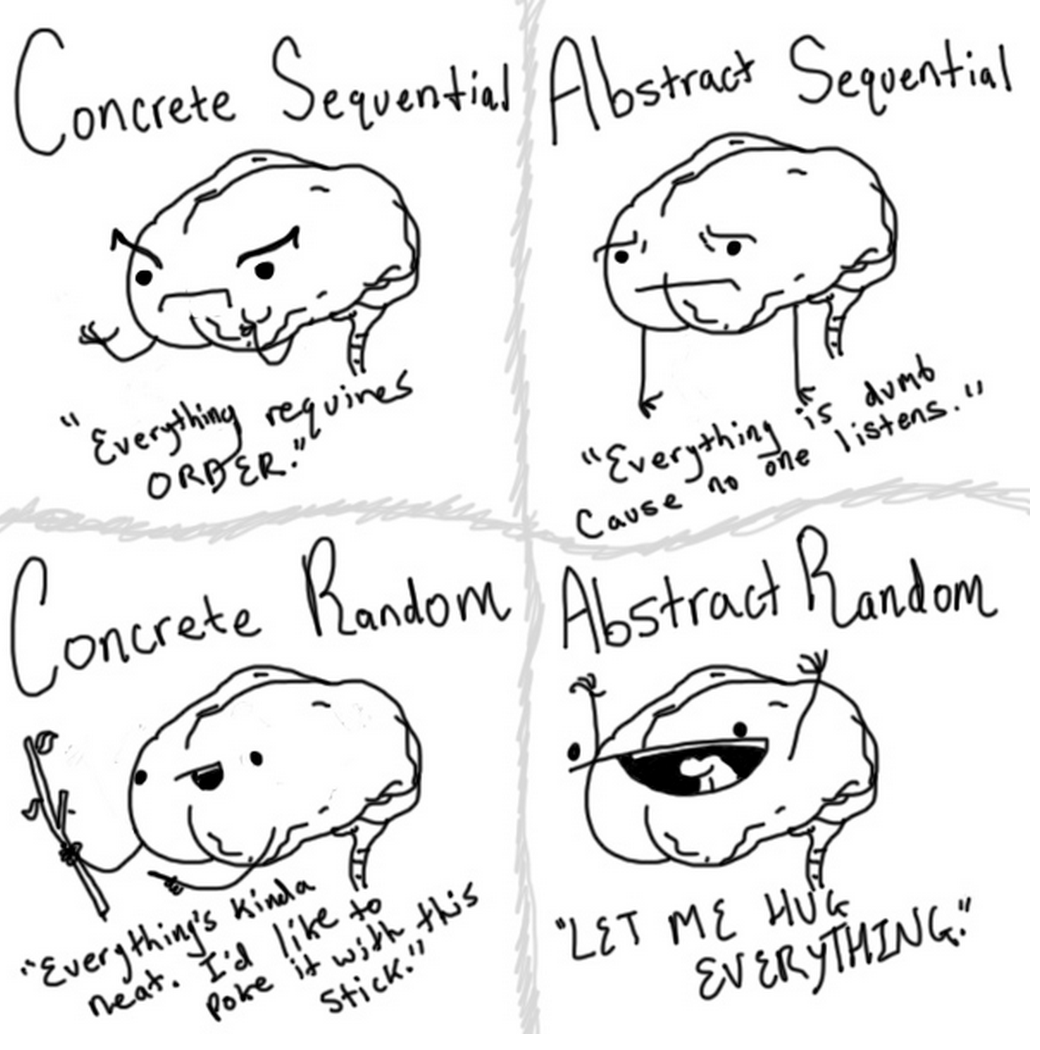 Concrete Sequential
"Everything requires
ORDER."
Abstract Sequential
"Everything is dumb
Cause no one listens."
Concrete Random
"Everything's kinda
neat. I'd like to
poke it with this
stick."
Abstract Random
"LET ME HUG
EVERYTHING."